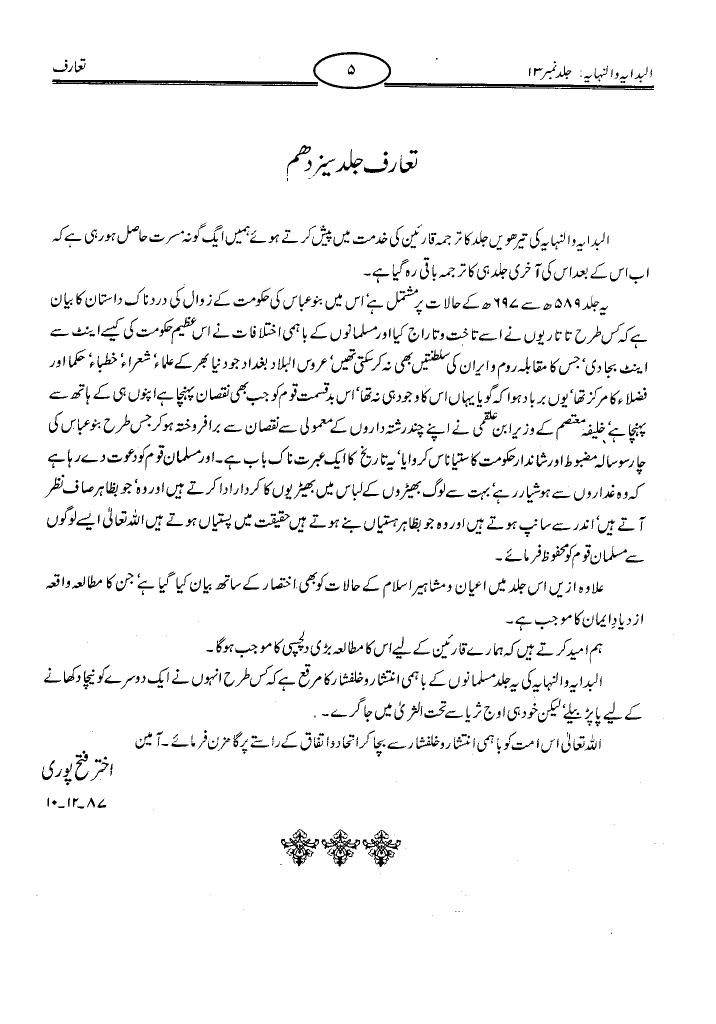 البدایہ والنہایہ: جلد نمبر ۱۳
۵
تعارف
تعارف جلد سیزدھم
البدایہ والنہایہ کی تیرھویں جلد کا ترجمہ قارئین کی خدمت میں پیش کرتے ہوئے ہمیں ایگ گونہ مسرت حاصل ہو رہی ہے کہ
اب اس کے بعد اس کی آخری جلد ہی کا ترجمہ باقی رہ گیا ہے۔
یہ جلد ۵۸۹ھ سے ۶۹۷ھ کے حالات پر مشتمل ہے‘ اس میں بنو عباس کی حکومت کے زوال کی دردناک داستان کا بیان
ہے کہ کس طرح تاتاریوں نے اسے تاخت و تاراج کیا اور مسلمانوں کے باہمی اختلافات نے اس عظیم حکومت کی کیسے اینٹ سے
اینٹ بجا دی‘ جس کا مقابلہ روم و ایران کی سلطنتیں بھی نہ کر سکتی تھیں‘ عروس البلاد بغداد جو دنیا بھر کے علماء‘ شعراء‘ خطباء‘ حکما اور
فضلاء کا مرکز تھا‘ یوں برباد ہوا کہ گویا یہاں اس کا وجود ہی نہ تھا‘ اس بدقسمت قوم کو جب بھی نقصان پہنچا ہے اپنوں ہی کے ہاتھ سے
پہنچا ہے‘ خلیفہ معتصم کے وزیر ابن علقمی نے اپنے چند رشتہ داروں کے معمولی سے نقصان سے برافروختہ ہو کر جس طرح بنو عباس کی
چار سو سالہ مضبوط اور شاندار حکومت کا ستیاناس کروایا‘ یہ تاریخ کا ایک عبرت ناک باب ہے۔ اور مسلمان قوم کو دعوت دے رہا ہے
کہ وہ غداروں سے ہوشیار رہے‘ بہت سے لوگ بھیڑوں کے لباس میں بھیڑیوں کا کردار ادا کرتے ہیں اور وہ‘ جو بظاہر صاف نظر
آتے ہیں‘ اندر سے سانپ ہوتے ہیں اور وہ جو بظاہر ہستیاں بنے ہوتے ہیں حقیقت میں پستیاں ہوتے ہیں اللہ تعالیٰ ایسے لوگوں
سے مسلمان قوم کو محفوظ فرمائے۔
علاوہ ازیں اس جلد میں اعیان و مشاہیر اسلام کے حالات کو بھی اختصار کے ساتھ بیان کیا گیا ہے‘ جن کا مطالعہ واقعہ
ازدیادِ ایمان کا موجب ہے۔
ہم امید کرتے ہیں کہ ہمارے قارئین کے لیے اس کا مطالعہ بڑی دلچسپی کا موجب ہوگا۔
البدایہ والنہایہ کی یہ جلد مسلمانوں کے باہمی انتشار و خلفشار کا مرقع ہے کہ کس طرح انہوں نے ایک دوسرے کو نیچا دکھانے
کے لیے پاپڑ بیلے‘ لیکن خود ہی اوج ثریا سے تحت الثریٰ میں جا گرے۔
اللہ تعالیٰ اس امت کو باہمی انتشار و خلفشار سے بچا کر اتحاد و اتفاق کے راستے پر گامزن فرمائے۔ آمین
اختر فتح پوری
۱۰۔۱۲۔۸۷